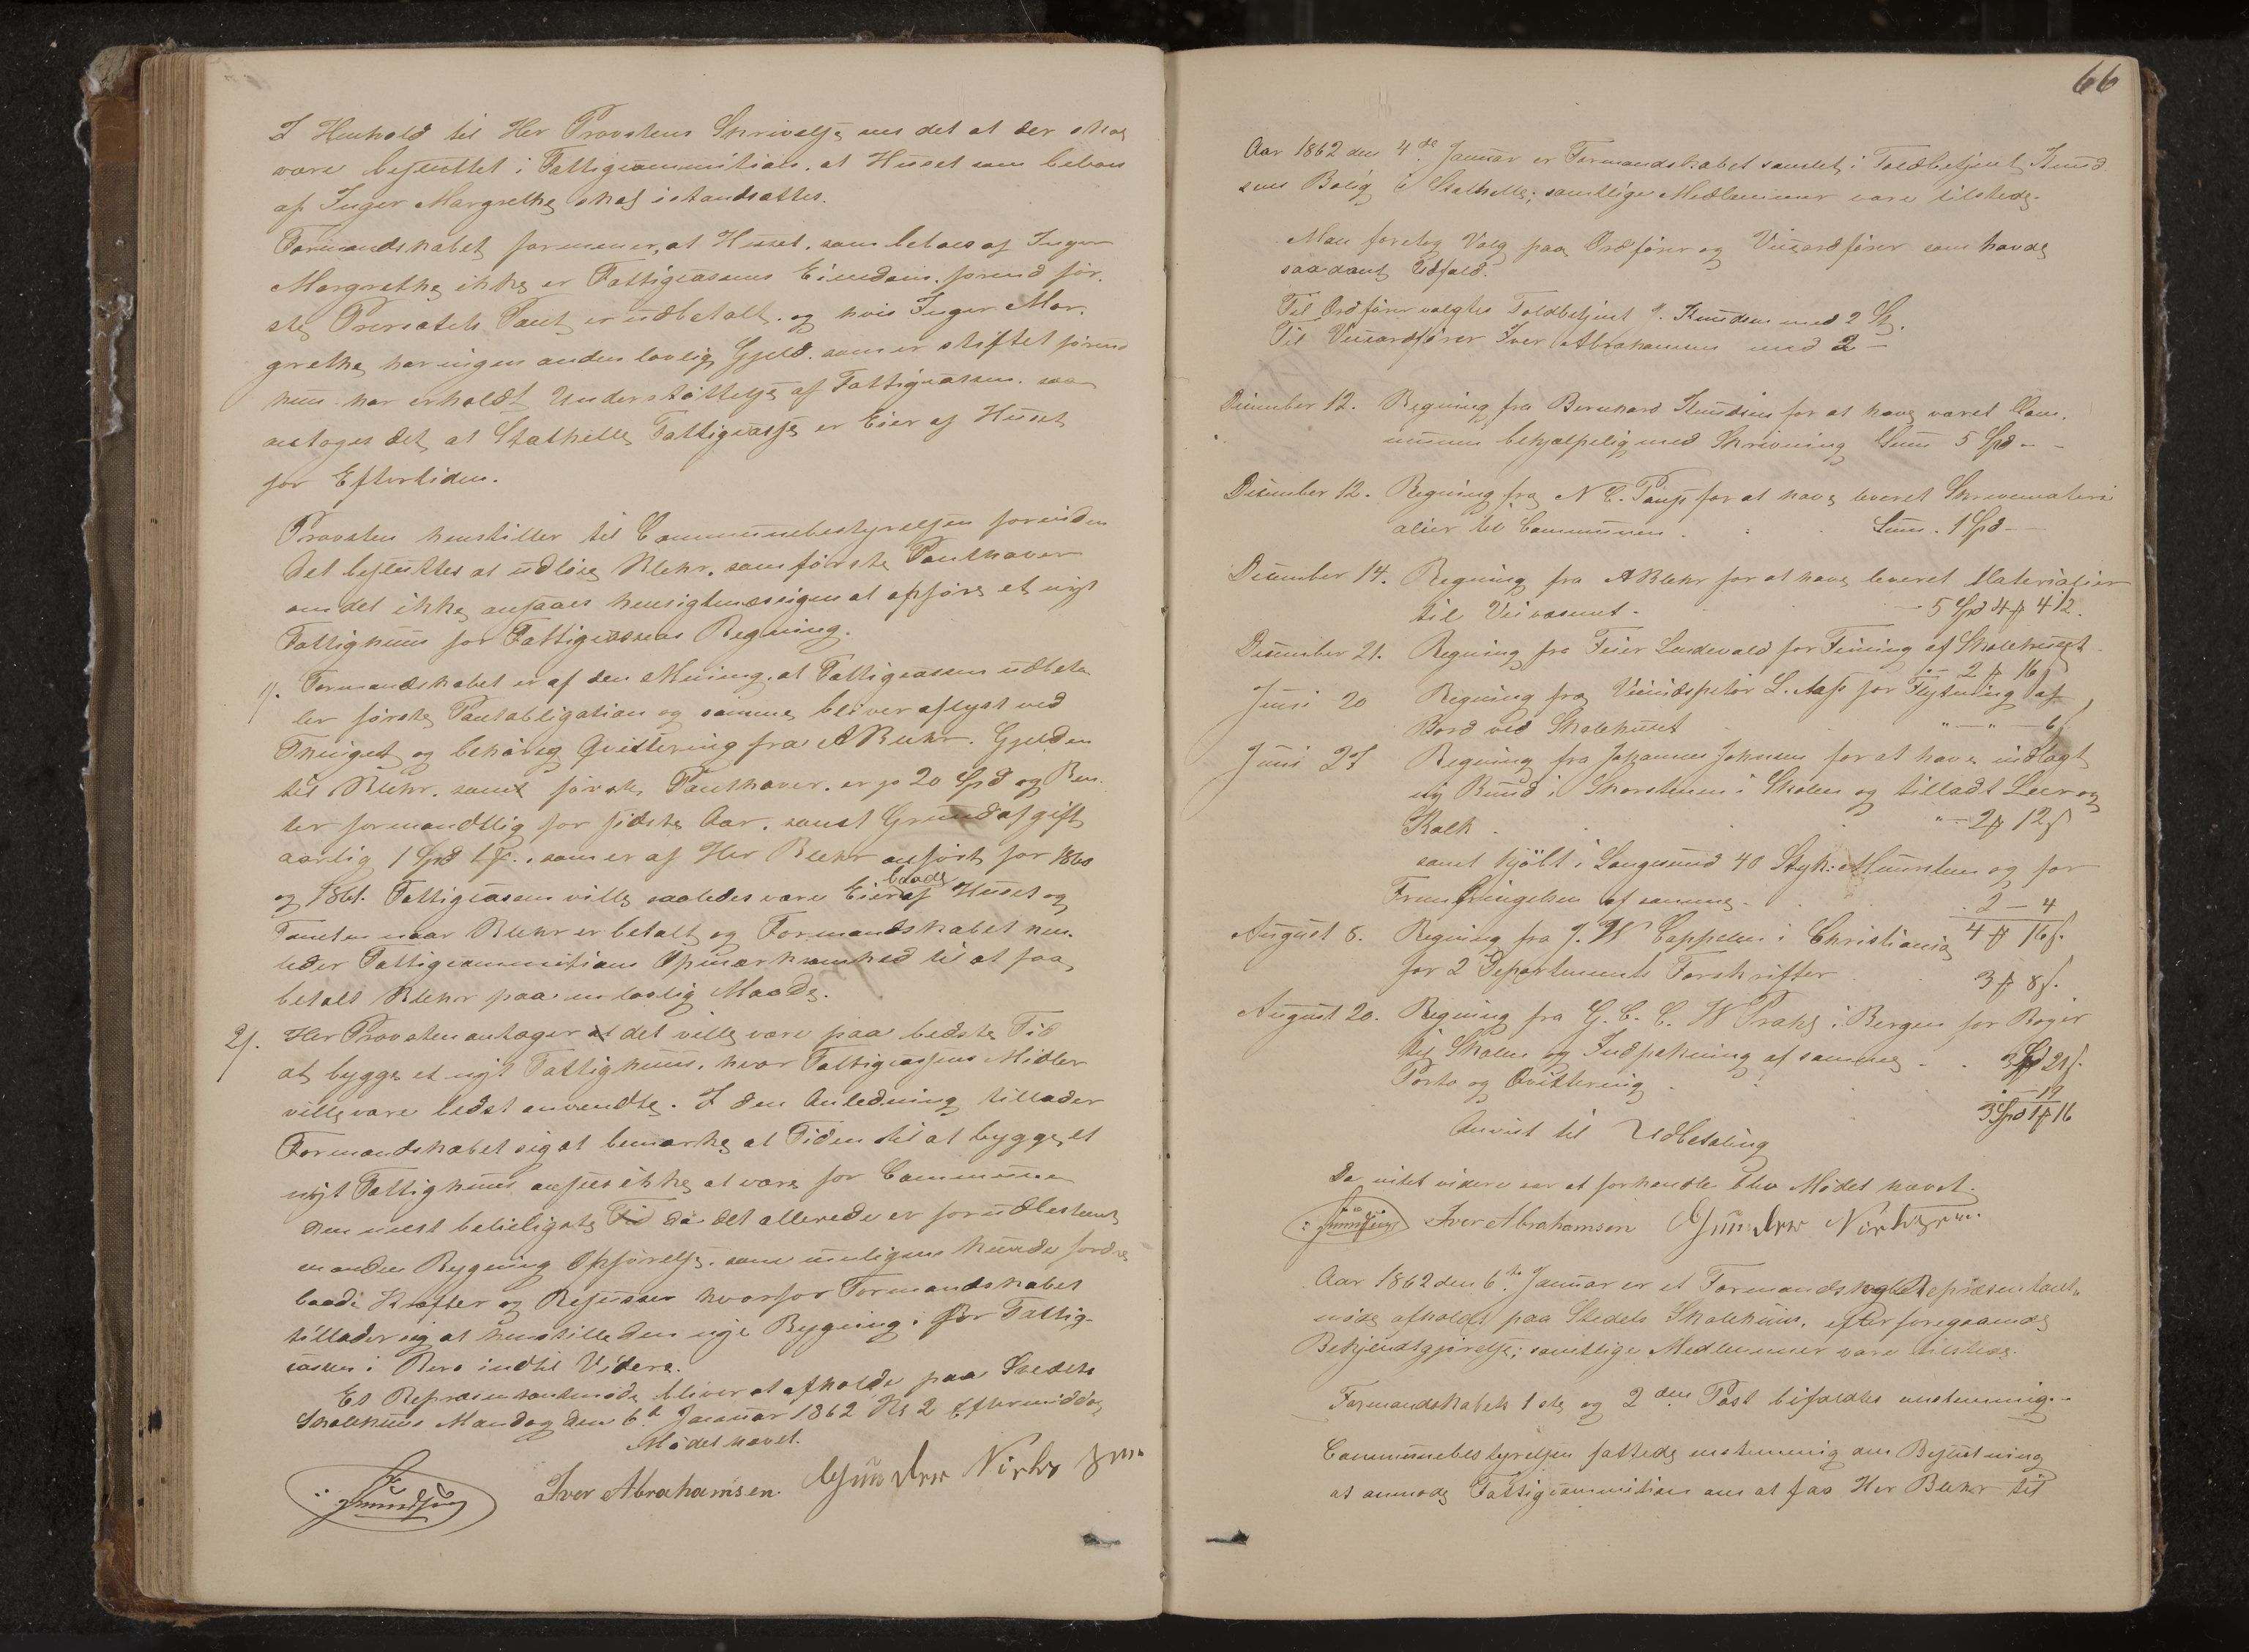 I Henhold til Her Provstens Skrivelse om det at der skal
være besluttet i Fattigcommitionen, at Huset som beboes
af Inger Margrethe skal istandsættes.
Formandskabet formener, at Huset, som beboes af Inger
Margrethe ikke er Fattigcassens Eiendom, førend før-
ste Prioritets Pant er udbetalt, og hvis Inger Mar-
grethe har ingen anden lovlig Gjeld, som er stiftet førend
hun har erholdt Understøttelse af Fattigcassen, saa
antages det, at Stathelle Fattigcasse er Eier af Huset
for Eftertiden.
Provsten henstiller til Communebestyrelsen forinden
det besluttes at udløse Blehr, som første Panthaver
om det ikke ansaaes hensigtmæssigen at opføre et nyt
Fattighuus for Fattigcassens Regning.
1/. Formandskabet er af den Mening, at Fattigcassen udbeta-
ler første Pantobligation og samme bliver aflyst ved
Thinget og behørig Qvittering fra A Blehr. Gjelden
til Blehr, som første Panthaver, er p 20 Spd og Ren-
ter formandtlig for sidste Aar, samt Grundafgift
aarlig 1 Spd 1 , som er af Her Blehr anført for 1860
og 1861. Fattigcassen ville saaledes være Eier baade af Huset og
Tomten naar Blehr er betalt og Formandskabet hen-
leder Fattigcommitions Opmærksomhed til at faa
betalt Blehr paa en lovlig Maade.
2/. Her Provsten antager at det ville være paa bedste Tid
at bygge et nyt Fattighuus, hvor Fattigcassens Midler
ville være bedst anvendte. I den Anledning tillader
Formandskabet sig at bemærke at Tiden til at bygge et
nyt Fattighuus ansees ikke at være for Commune
den mest beleiligste Tid da det allerede er forudbestemt
en anden Bygning Opførelse, som muligens kunde fordre
baade Kræfter og Resusser hvorfor Formandskabet
tillader sig at henstille den nye Bygning for Fattig-
cassen i Bero indtil Videre.
Et Repræsentantmøde bliver at afholde paa Stedets
Skolehuus Mandag den 6te Januar 1862 Kl 2 Eftermiddag
Mødet hævet.
Knudsen Iver Abrahamsen Gunder Nirissen
66
Aar 1862 den 4de Januar er Formandskabet samlet i Toldbetjent Knud-
sens Bolig i Stathelle; samtlige Medlemmer vare tilstede.
Man foretog Valg paa Ordfører og Viceordfører som havde
saadant Udfald.
Til Ordfører valgtes Toldbetjent Knudsen med 2 St.
Til Viceordfører Iver Abrahamsen med 2 —
December 12. Regning fra Bernhard Knudsen for at have været Com-
munen behjælpelig med Skrivning Sum 5 Spd — —
December 12. Regning fra N C. Paus for at have leveret Skrivemateri
alier til Communen . Sum . 1 Spd — —
December 14. Regning fra A Blehr for at have leveret Materialier
til Veivæsenet . — 5 Spd 4 ₰ 412.
December 21. Regning fra Feier Lindevald for Feining af Skolehuset
" — 2 ₰ 16ʃ
Juni 20 Regning fra Veiindspetør L. Aas for Flytning af
Bord ved Skolehuset " — " — 6ʃ
Juni 27 Regning fra Johannes Johnsen for at have indlagt
ny Bund i Skorstenen i Skolen og tilladt Leer og
Kalk . " — 2 ₰ 12ʃ
samt kjøbt i Langesund 40 Styk: Muursteen og for
Frembringelsen af samme . 2 — 4
4 ₰ 16ʃ.
August 8. Regning fra J. W Cappelen i Christiania
for 2 Departements Forskrifter 3 ₰ 8ʃ.
August 20. Regning fra G. C. C. W Prahl i Bergen for Bøger
til Skolen og Indpakning af samme . . 3 Spd 21ʃ.
Porto og Qvittering . " — 19
3 Spd 1 ₰ 16
Anvist til Udbetaling
Da intet videre var at forhandle blev Mødet hævet.
Knudsen Iver Abrahamsen Gunder Nirissen
Aar 1862 den 6te Januar er et Formandsk og Repræsentant-
møde afholdt paa Stedets Skolehuus, efter foregaaende
Bekjendtgjørelse; samtlige Medlemmer vare tilstede.
Formandskabets 1ste og 2den Post bifaldtes enstemmig.
Communebestyrelsen fattede enstemmig om Beslutning
at anmode Fattigcommitionen om at faa Her Blehr til